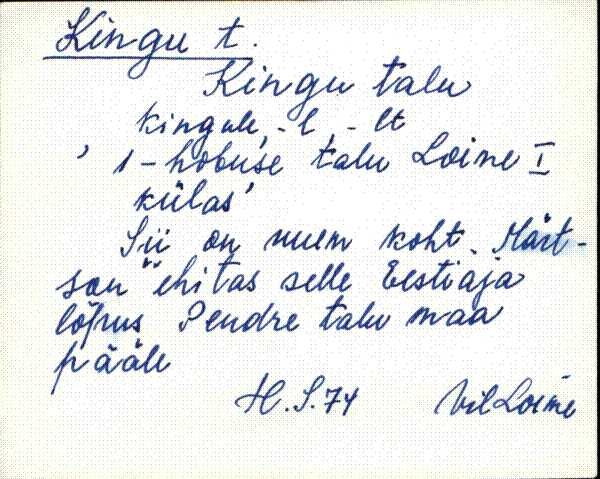 Kingu t.
Kingu talu
kingule, -l, -lt
' 1-hobuse talu Loine I
külas'
Sii on uuem koht. Märt-
son ehitas selle Eestiaja
lõpus Pendre talu maa
pääle
H.S.74 Vil Loime